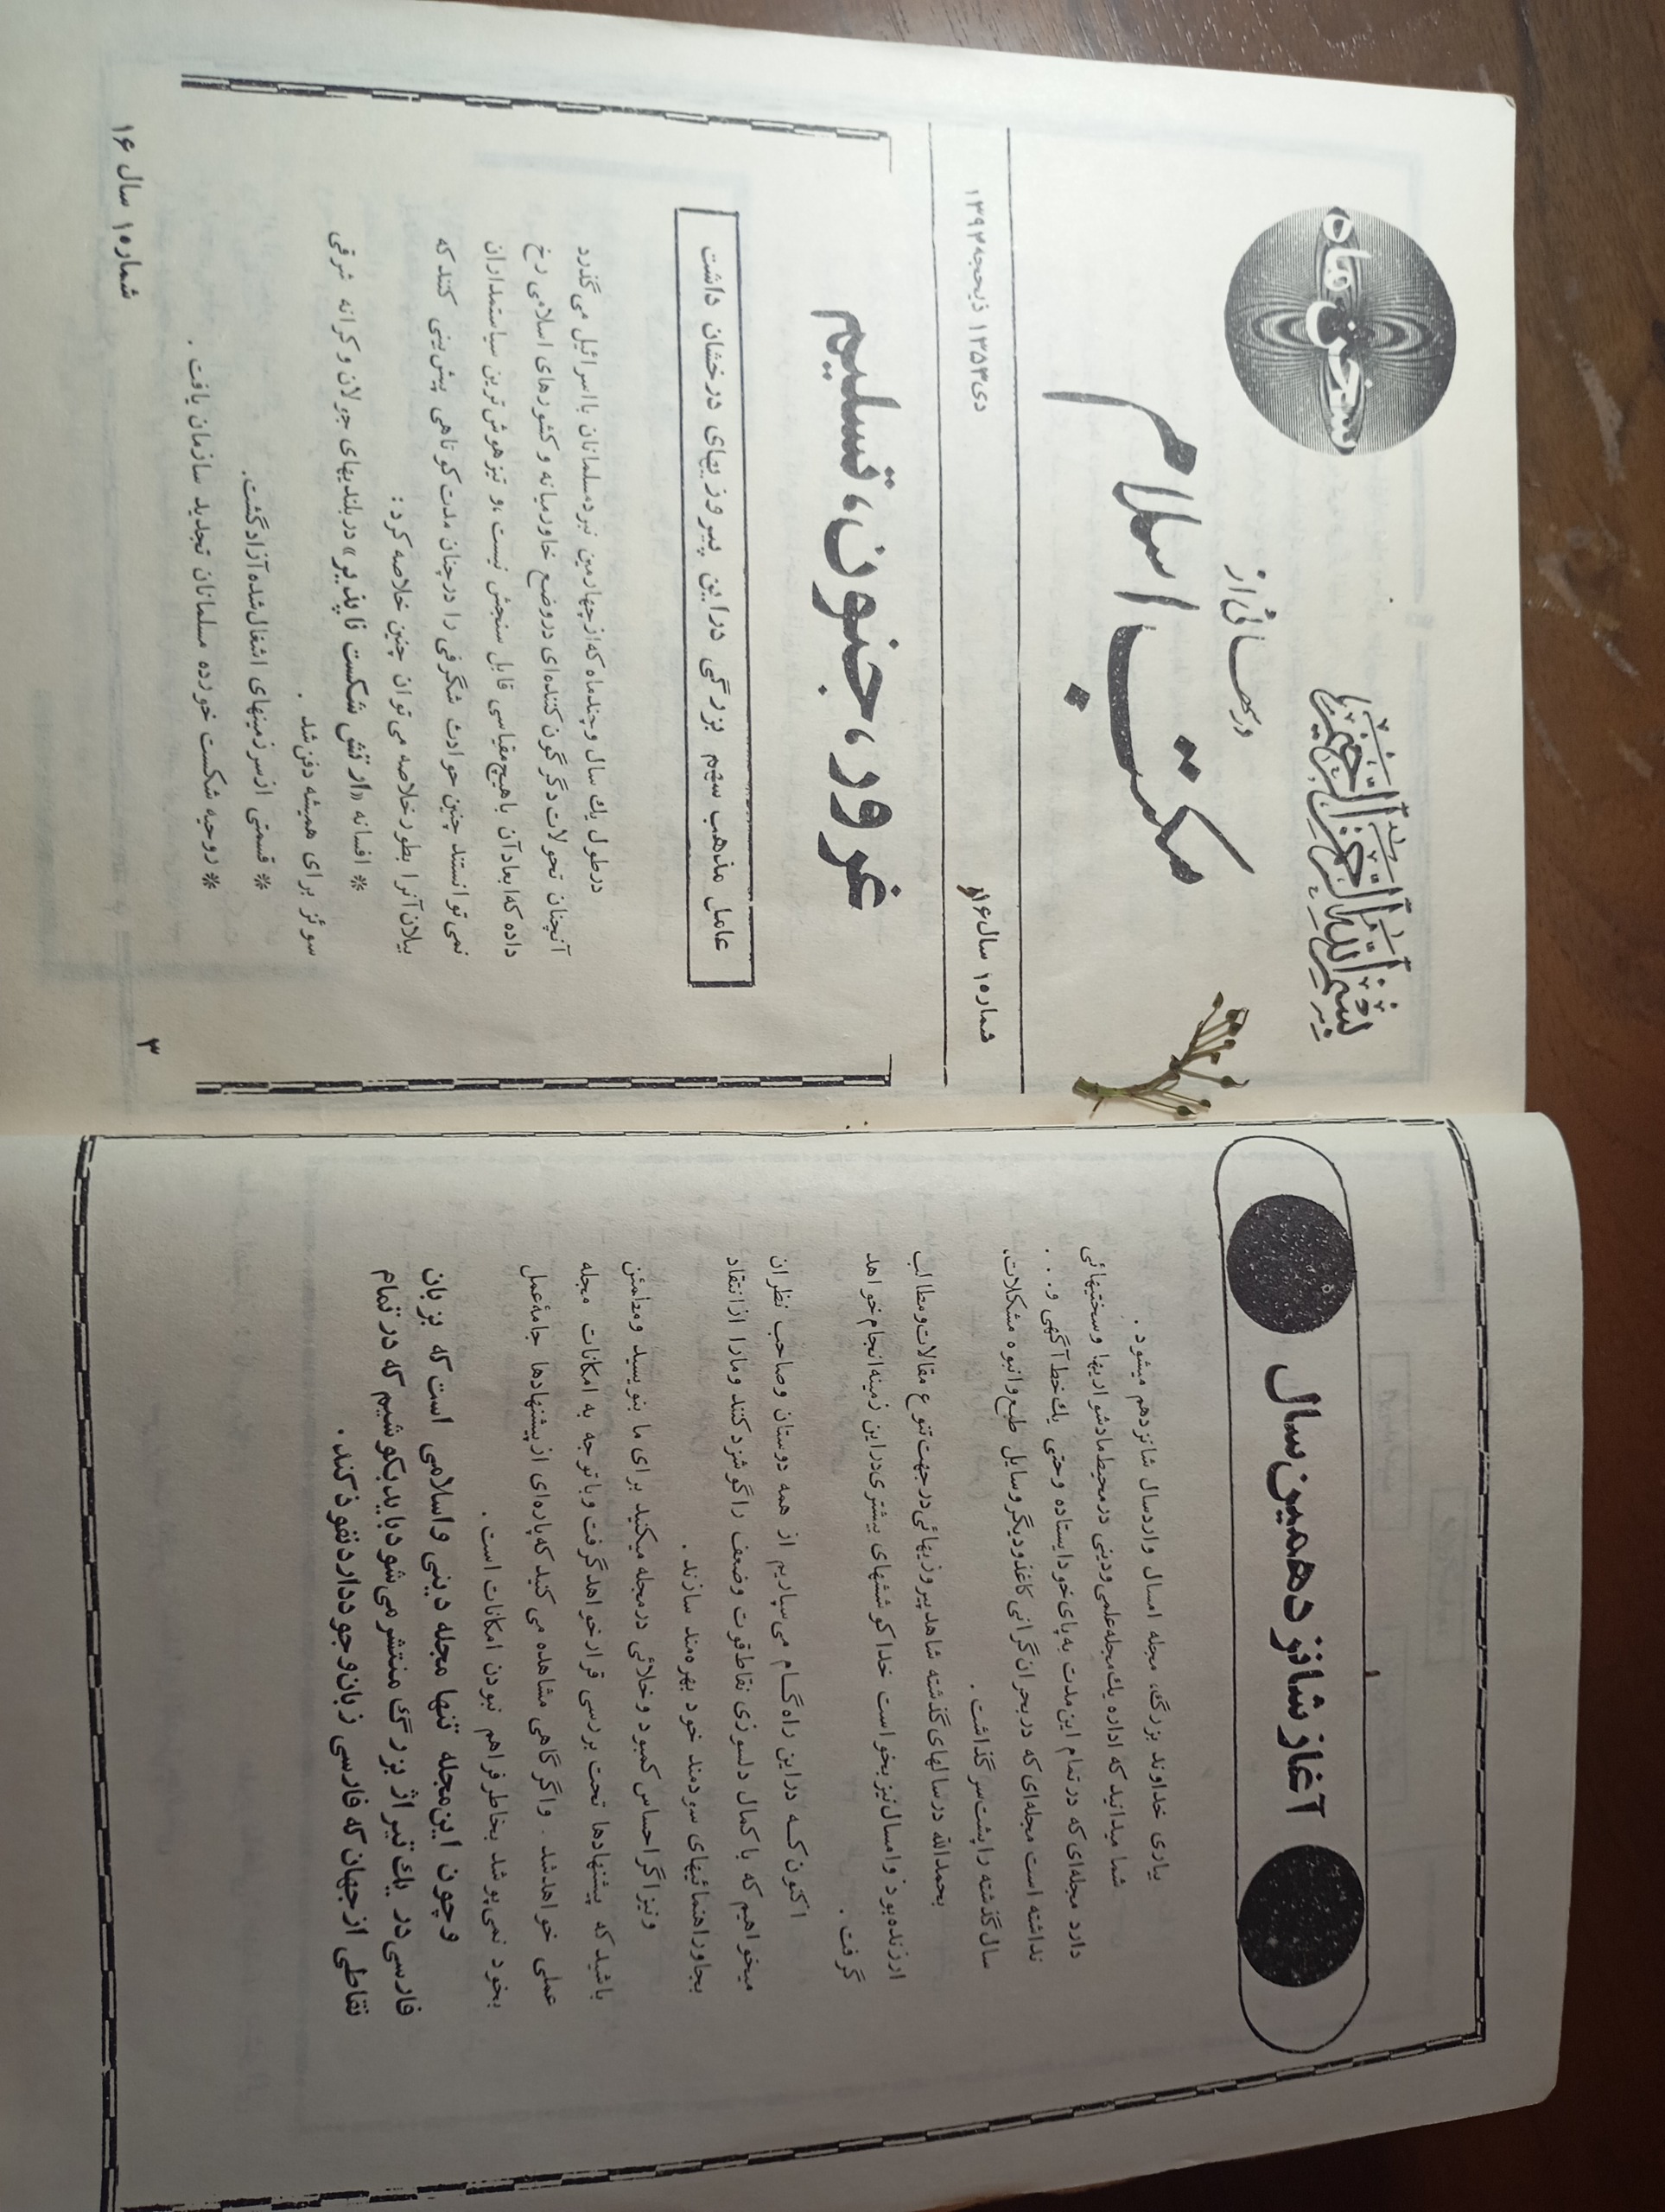 آغاز شانزدهمین سال
بیاری خداوند بزرگ، مجله امسال وارد سال شانزدهم میشود .
شما میدانید که اداره یك مجله علمی و دینی در محیط ما دشواریها و سختیهائی
دارد مجله‌ای که در تمام این مدت به پای خود ایستاده و حتی یك خط آگهی و . . .
نداشته است مجله‌ای که در بحران گرانی کاغذ و دیگر وسایل طبع و انبوه مشکلات،
سال گذشته را پشت سر گذاشت .
بحمدالله در سالهای گذشته شاهد پیروزیهائی در جهت تنوع مقالات و مطالب
ارزنده بود و امسال نیز بخواست خدا کوششهای بیشتری در این زمینه انجام خواهد
گرفت .
اکنون کـه در این راه گـام می‌سپاریم از همه دوستان و صاحب نظران
میخواهیم که با کمال دلسوزی نقاط قوت و ضعف را گوشزد کنند و ما را از انتقاد
بجا و راهنمائیهای سودمند خود بهره‌مند سازند .
و نیز اگر احساس کمبود و خلائی در مجله میکنید برای ما بنویسید و مطمئن
باشید که پیشنهادها تحت بررسی قرار خواهد گرفت و با توجه به امکانات مجله
عملی خواهد شد . و اگر گاهی مشاهده می کنید که پاره‌ای از پیشنهادها جامهٔ عمل
بخود نمی‌پوشد بخاطر فراهم نبودن امکانات است .
و چون این مجله تنها مجله دینی و اسلامی است که بزبان
فارسی در یك تیراژ بزرگ منتشر می‌شود باید بکوشیم که در تمام
نقاطی از جهان که فارسی زبان وجود دارد نفوذ کند .
بسم الله الرحمن الرحیم
سخن ماه
درسهائی از
مکتب اسلام
شماره ۱ سال ۱۶
دی ۱۳۵۳ ذیحجه ۱۳۹۴
غرور، جنون، تسلیم
عامل مذهب سهم بزرگی در این پیروزیهای درخشان داشت
در طول یك سال و چند ماه که از چهارمین نبرد مسلمانان با اسرائیل می گذرد
آنچنان تحولات دگرگون کننده‌ای در وضع خاورمیانه و کشورهای اسلامی رخ
داده که ابعاد آن با هیچ مقیاسی قابل سنجش نیست، و تیزهوش‌ترین سیاستمداران
نمی توانستند چنین حوادث شگرفی را در چنان مدت کوتاهی پیش‌بینی کنند که
بیلان آنرا بطور خلاصه می توان چنین خلاصه کرد :
* افسانه «ارتش شکست ناپذیر» در بلندیهای جولان و کرانه شرقی
سوئز برای همیشه دفن شد .
* قسمتی از سرزمینهای اشغال شده آزاد گشت.
* روحیه شکست خورده مسلمانان تجدید سازمان یافت .
شماره ۱ سال ۱۶
۳